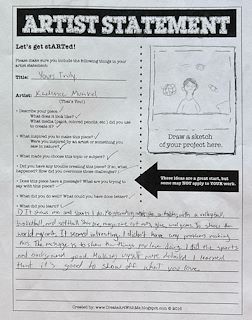 ARTIST STATEMENT
Let's get stARTed!
Please make sure you include the following things in your
artist statement:
Title: Yours Truly
Artist: Kaydence
(That's You!)
• Describe your piece.
What does it look like?
What media (paint, colored pencils, etc.) did you
use to create it?
• What inspired you to make this piece?
Were you inspired by an artist or something you
saw in nature?
• What made you choose this topic or subject?
• Did you have any trouble creating this piece? If so, what
happened? How did you overcome those challenges?
• Does this piece have a message? What are you trying to
say with this piece?
• What did you do well? What could you have done better?
• What did you learn?
Draw a sketch
of your project here.
These ideas are a great start, but
some may NOT apply to YOUR work.
It shows me and sports I do. with a volleyball,
basketball, and softball. I used glue, and yarn to show the
world my arts. It seemed interesting. I didn't have any problems making
this. The message is to show the things you love doing. I did the sports
and background good. Making myself more detailed. I learned
that it's good to show off what you love.
Created by: www.CreateArtWithMe.blogspot.com © 2016